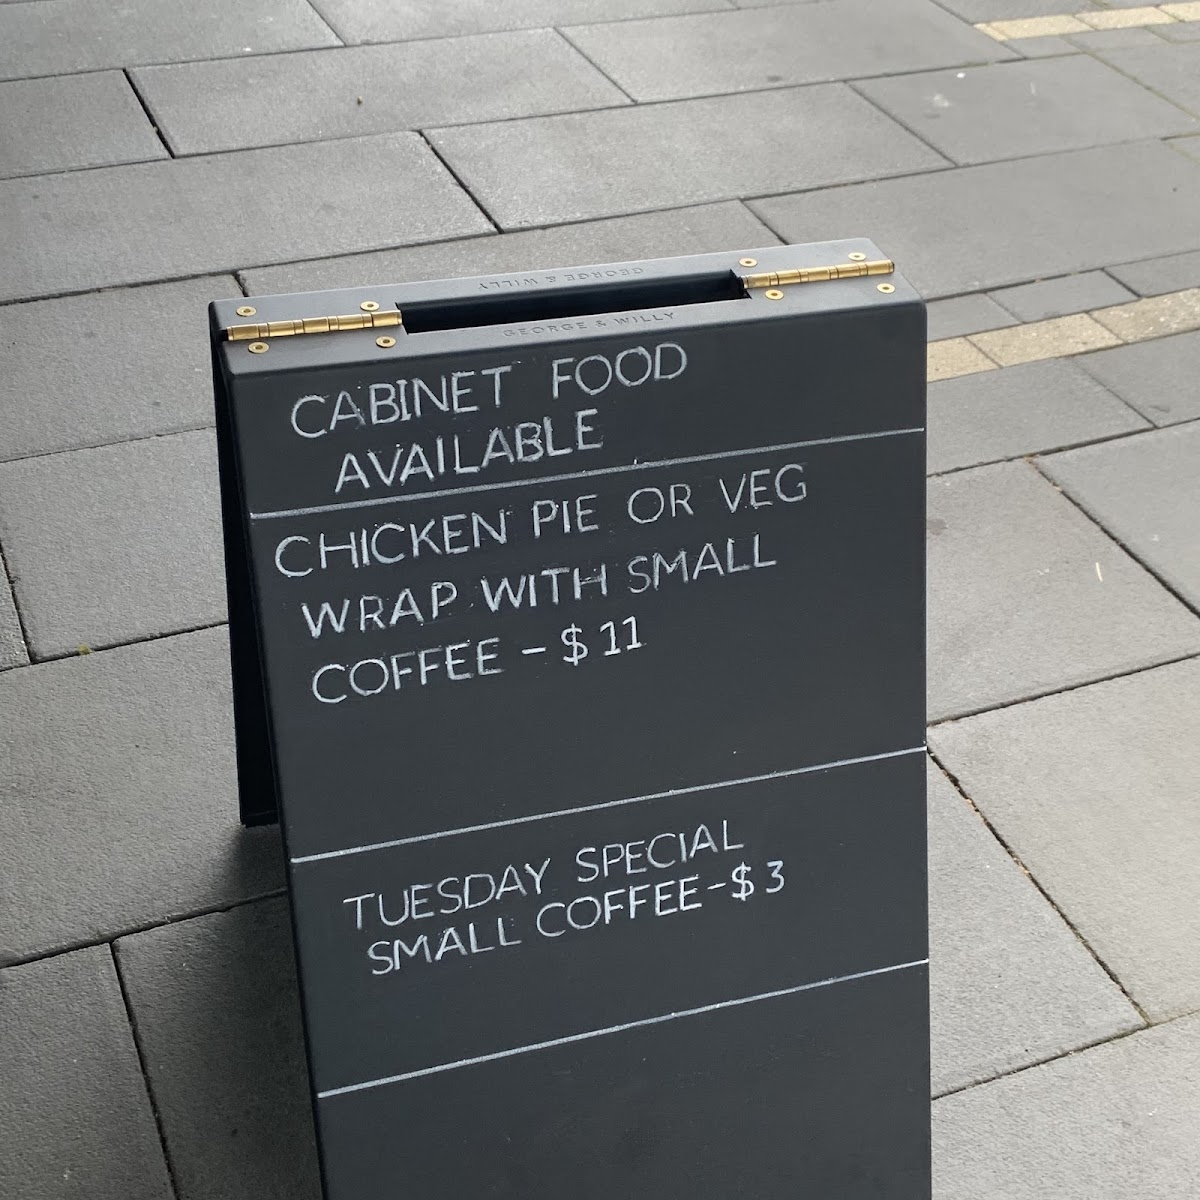 GEORGE & WILLY
GEORGE & WILLY
CABINET FOOD
AVAILABLE
CHICKEN PIE OR VEG
WRAP WITH SMALL
COFFEE - $11
TUESDAY SPECIAL
SMALL COFFEE - $3